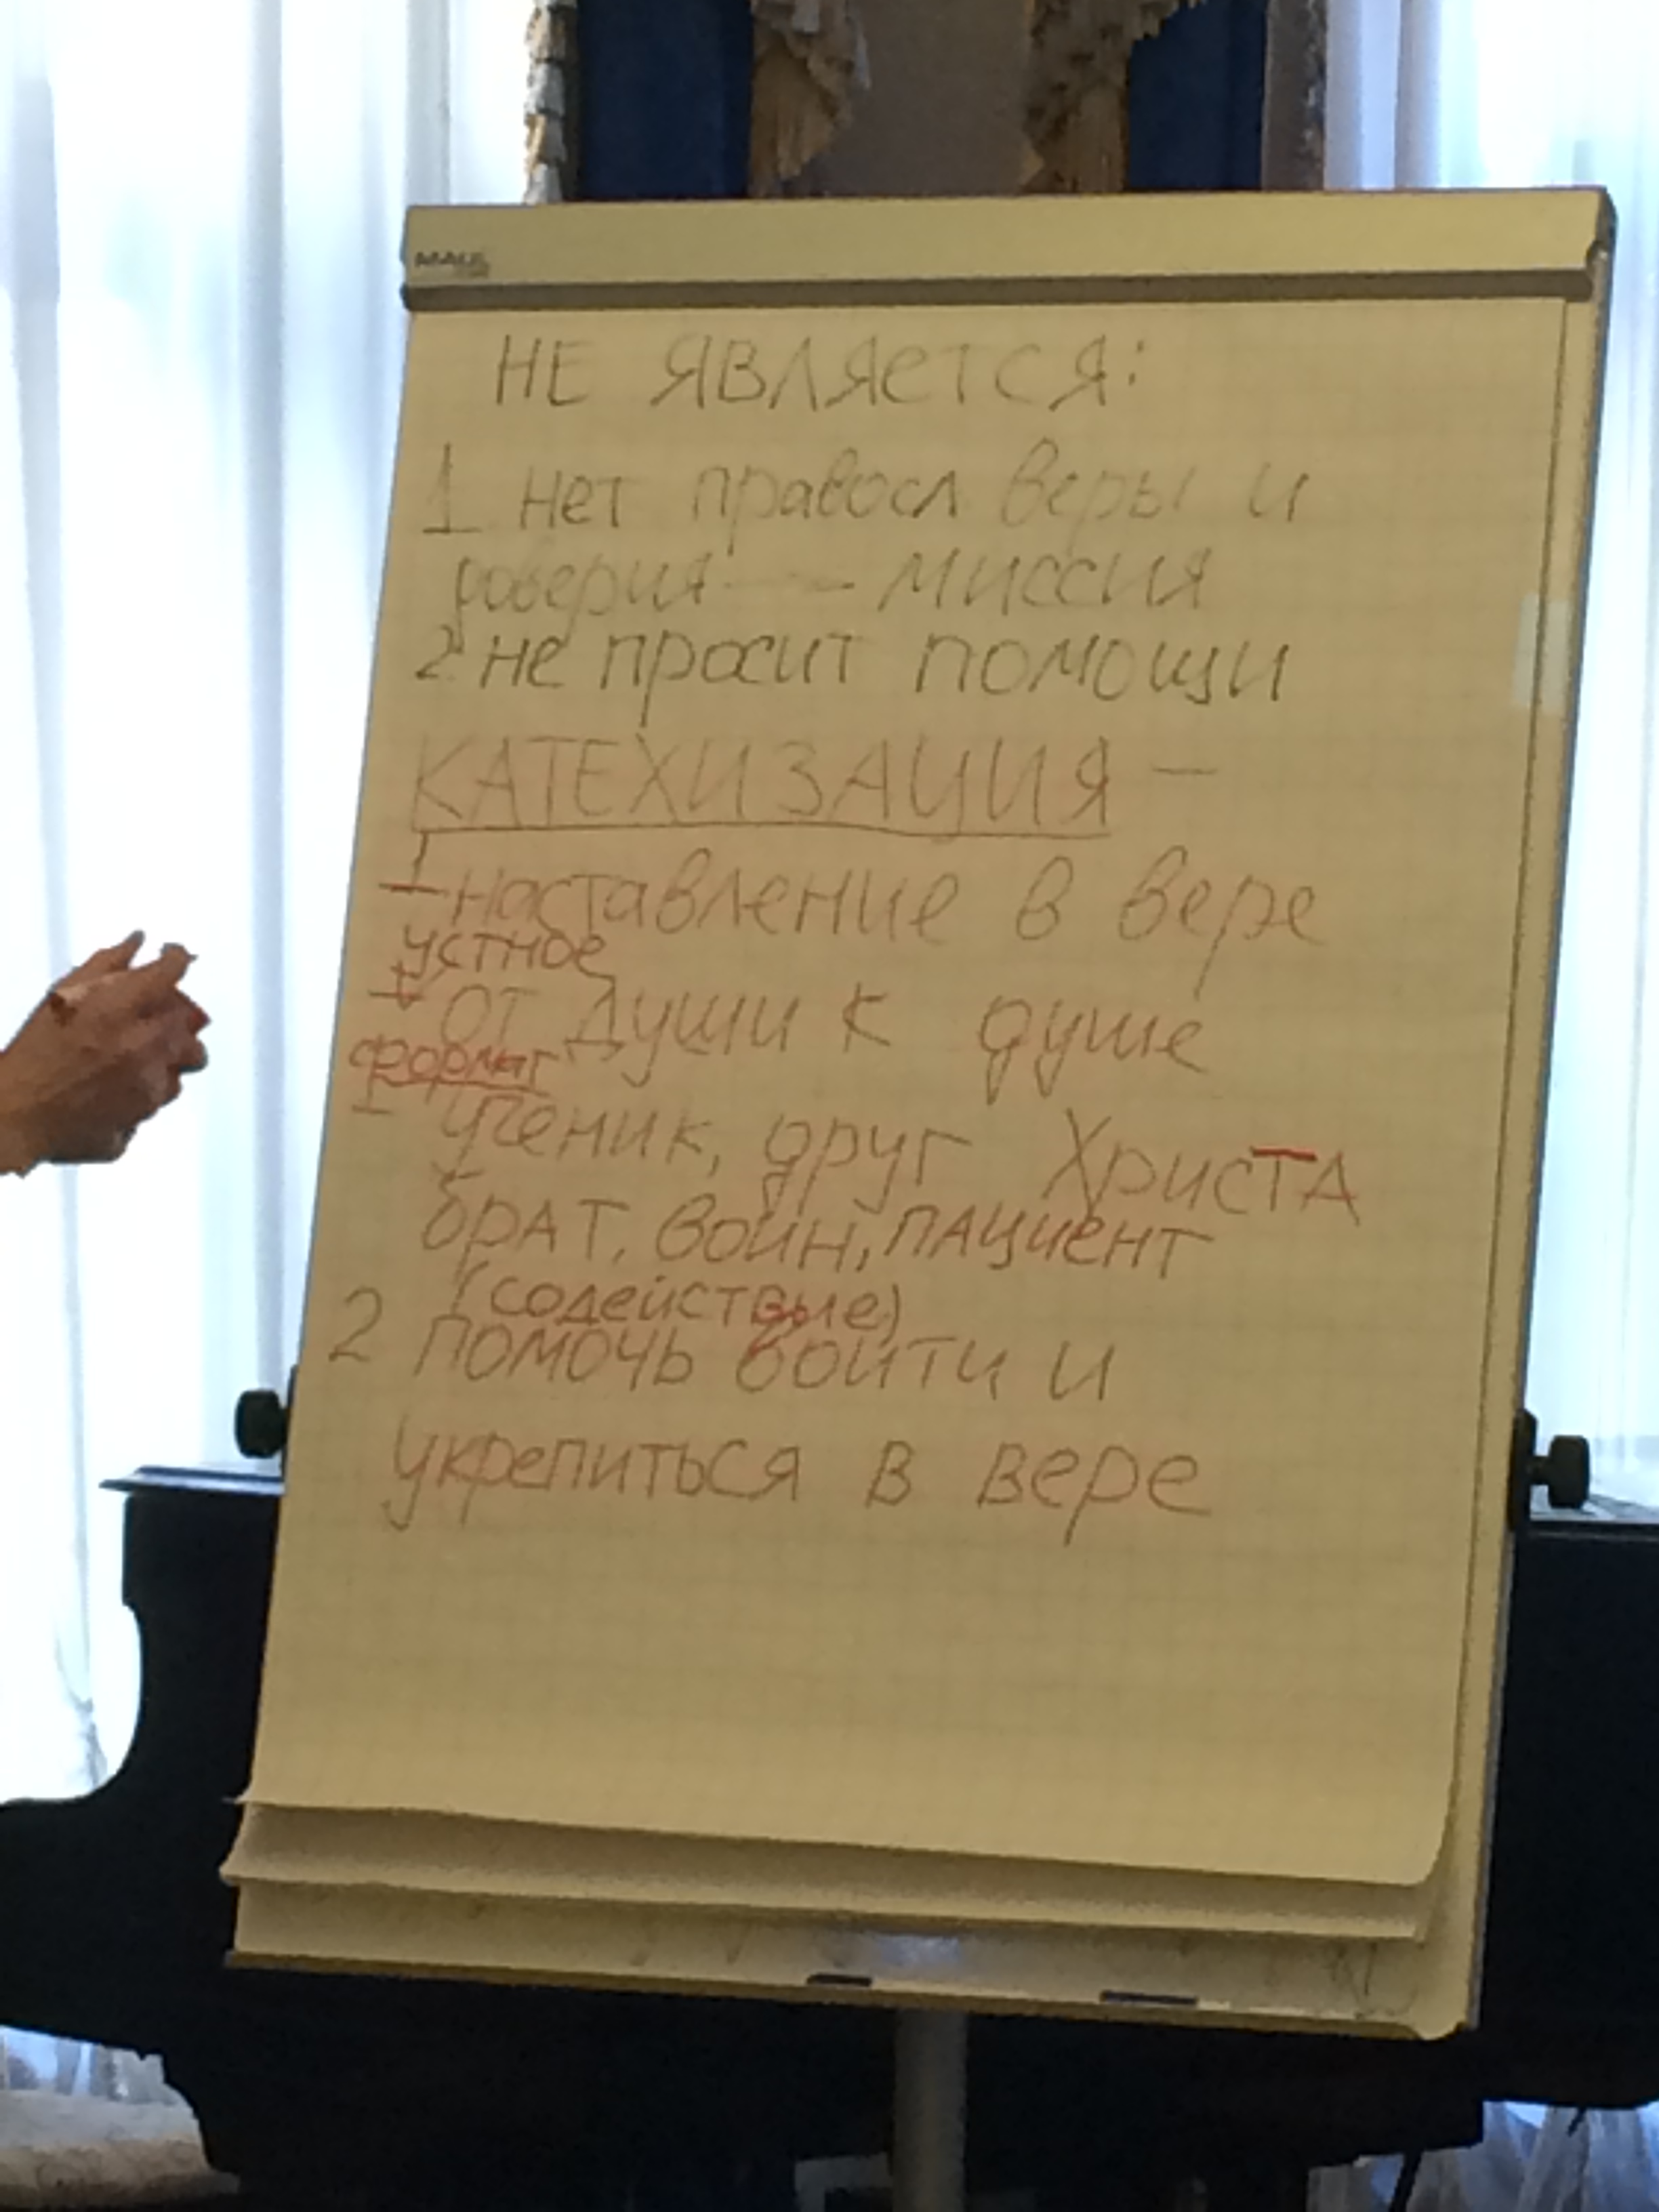 MAUL
НЕ ЯВЛЯЕТСЯ:
1 нет правосл веры и
доверия — миссия
2 не просит помощи
КАТЕХИЗАЦИЯ —
1 наставление в вере
устное
от души к душе
формат
ученик, друг ХрисТА
брАТ, воин, пАциент
(содействие)
2 помочь войти и
укрепиться в вере